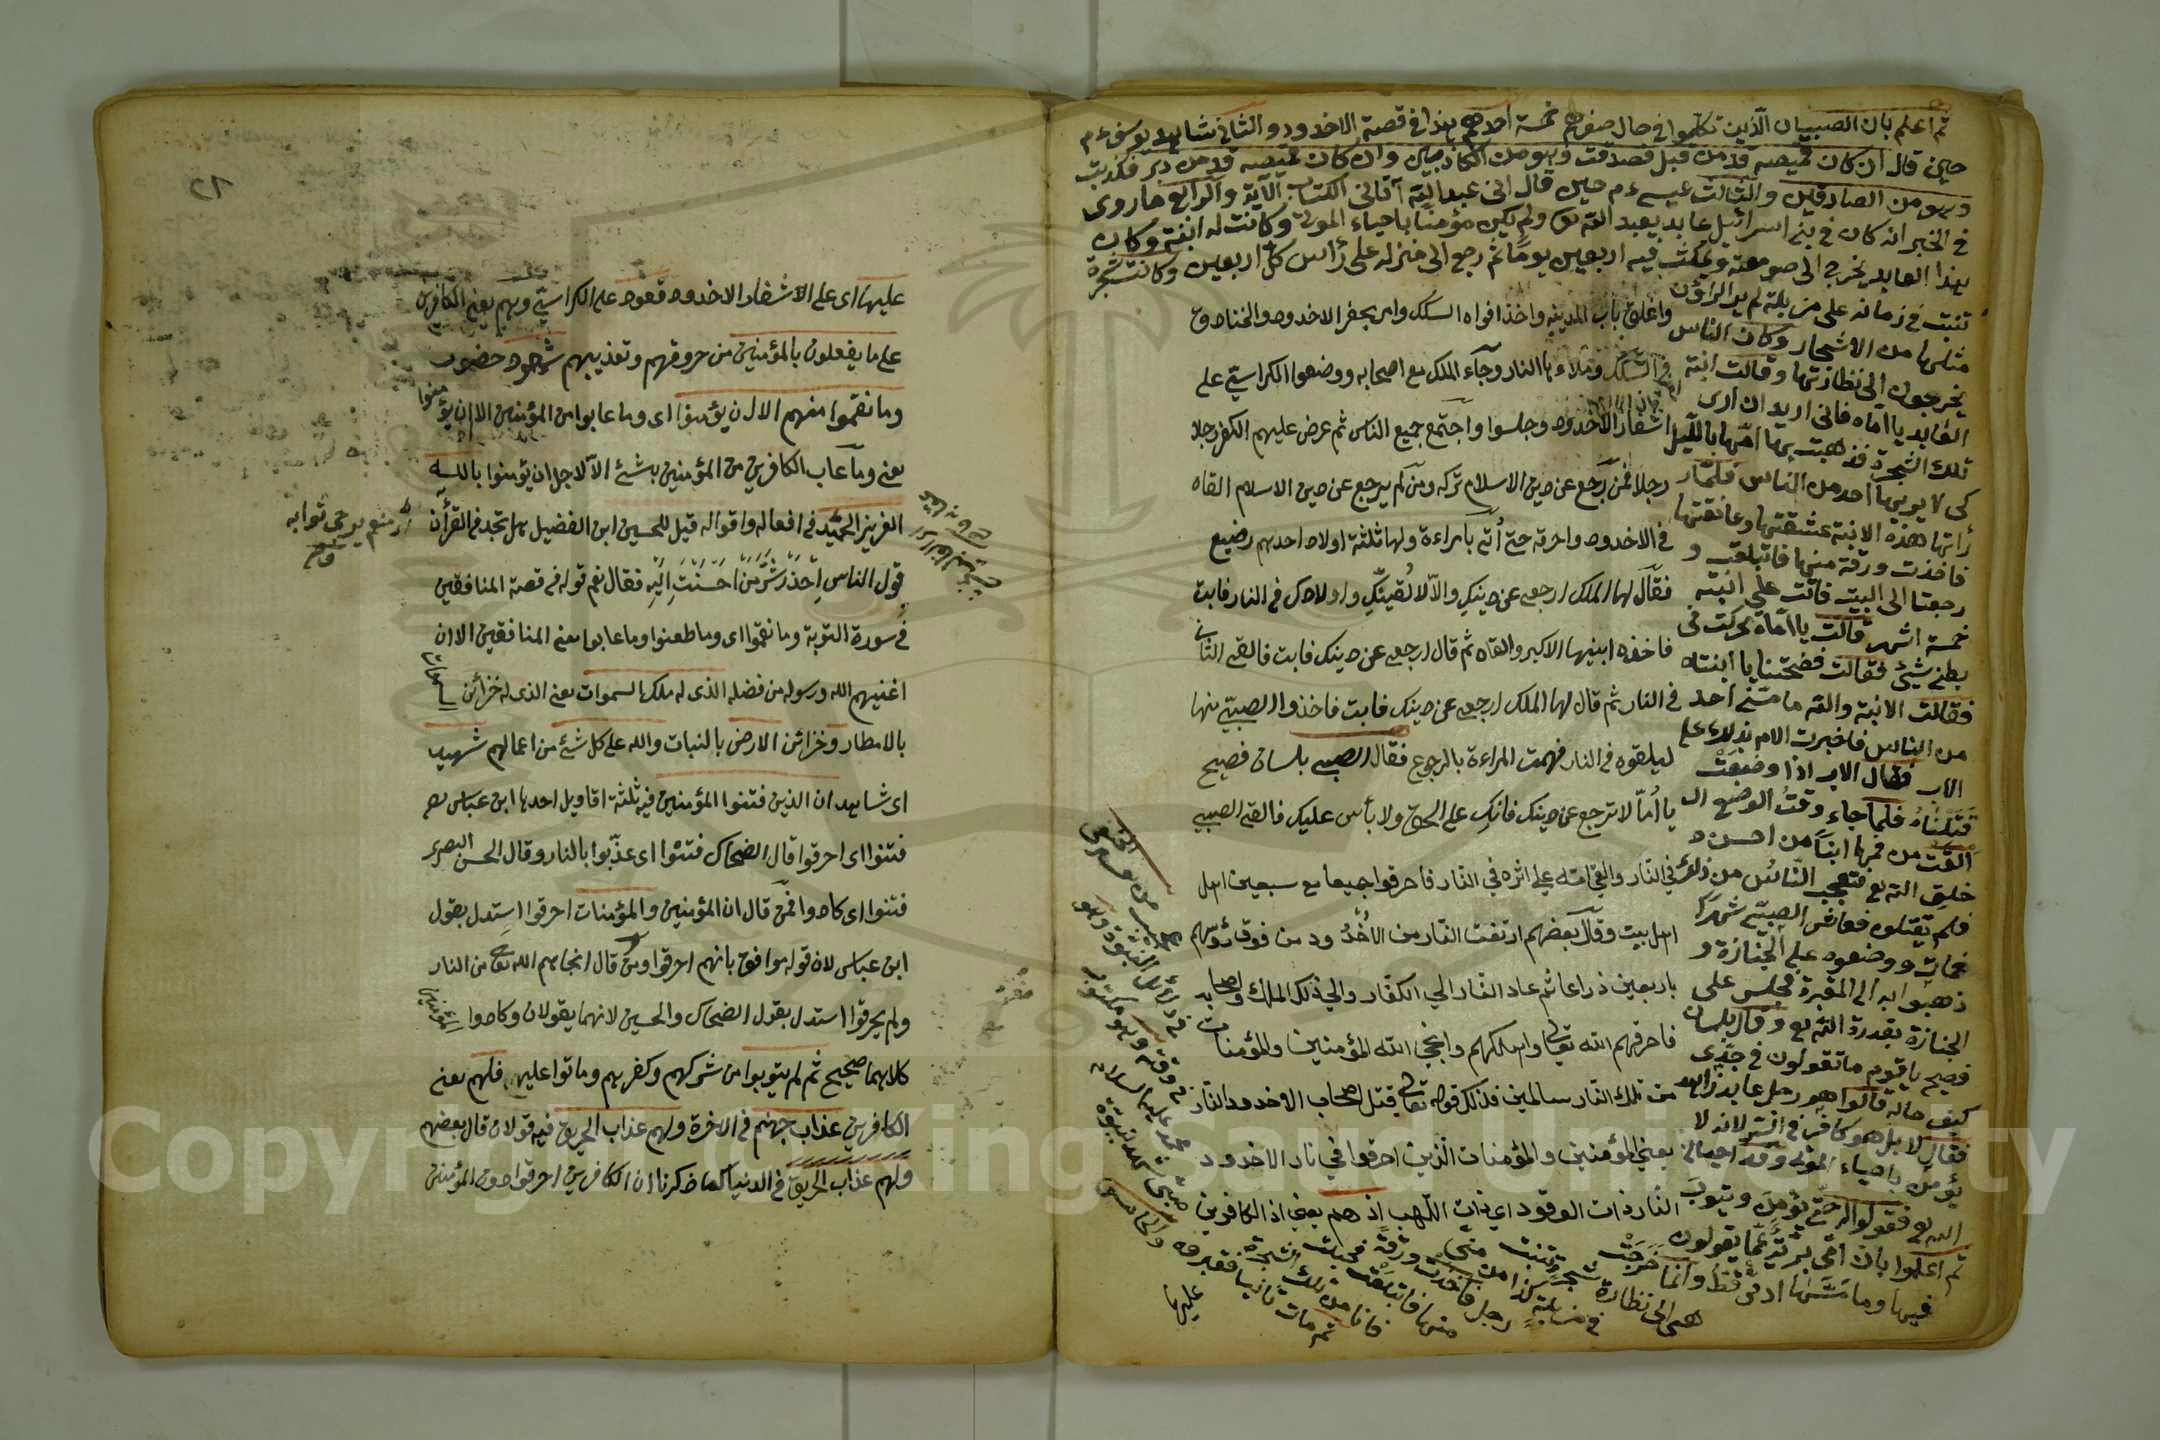 ثم اعلم بان الصبيان الذين تكلموا في حال صغرهم خمسة احدهم هذا في قصة الاخدود والثاني شاهد يوسف ع م
حين قال ان كان قميصه قد من قبل فصدقت وهو من الكاذبين وان كان قميصه قد من دبر فكذبت
وهو من الصادقين والثالث عيسى ع م حين قال اني عبد الله آتاني الكتاب الآية والرابع ما روى
في الخبر انه كان في بني اسرائيل عابد يعبد الله ولم يكن مؤمنا باحياء الموتى وكانت له ابنة وكان
هذا العابد يخرج الى صومعته ويمكث فيه اربعين يوما ثم رجع الى منزله على رأس كل اربعين وكانت شجرة
تنبت في زمانه على مزبلة لم ير الراؤن
مثلها من الاشجار وكان الناس
يخرجون الى نظارتها وقالت ابنة
العابد يا اماه فاني اريد ان ارى
تلك الشجرة فذهبت بها امها بالليل
كى لا يريها احد من الناس فلما
رأتها هذه الابنة عشقتها وعانقتها
فاخذت ورقة منها فابتلعت و
رجعتا الى البيت فاتت على البنت
خمسة اشهر قالت يا اماه تحركت في
بطني شيئ فقالت فضحتنا يا ابنتاه
فقالت الابنة والله ما مسني احد
من الناس فاخبرت الام بذلك على
الاب فقال الاب اذا وضعت
قتلناه فلما جاء وقت الوضع
القت من فمها ابنا من احسن
خلق الله تع فتعجب الناس من ذلك
فلم يقتلوه فعاش الصبي شهرا
فمات ووضعوه على الجنازة و
ذهبوا به الى المقبرة فجلس على
الجنازة بقدرة الله تع وقال بلسان
فصيح يا قوم ما تقولون في جدى
كيف حاله قالوا هو رجل عابد زاهد
فقال لا بل هو كافر في السر لانه لا
يؤمن باحياء الموتى وقد احيانى
الله تع فقولوا له حتى يؤمن ويتوب
ثم اعلموا بان امى بريئة عما يقولون
فيها وما مسها احد قط وانما خرجت
هى الى نظارة شجرة تنبت
في مزبلة كذا من منى
رجل فاخذت ورقة
منها فابتلعت فحبلت
فانا من تلك الشجرة
ثم مات ثانيا فقبروه
واغلق باب المدينه واخذ افواه السكك وامر بحفر الاخدود والخنادق
في السكك وملاءها النار وجآء الملك مع اصحابه ووضعوا الكراسي على
اشفار الاخدود وجلسوا واجتمع جميع الناس ثم عرض عليهم الكفر رجلا
رجلا فمن رجع عن دين الاسلام تركه ومن لم يرجع عن دين الاسلام القاه
في الاخدود واحرقه حتى اُتي بآمراءة ولها ثلثة اولاد احدهم رضيع
فقال لها الملك ارجعى عن دينك والا لالقينك واولادك في النار فابت
فاخذ ابنيها الاكبر والقاه ثم قال ارجعى عن دينك فابت فالقى الثاني
في النار ثم قال لها الملك ارجعى عن دينك فابت فاخذوا الصبي منها
ليلقوه في النار فهمت المراءة بالرجوع فقال الصبي بلسان فصيح
يا اُمّا لا ترجع عن دينك فانك على الحق ولا بأس عليك فالقى الصبي
في النار والقى امه على اثره في النار فاحرقوا جميعا مع سبعين اهل
اهل بيت وقال بعضهم ارتفت النار من الاُخْدُود من فوق رؤسهم
باربعين ذراعا ثم عاد النار الى الكفار والى ذلك الملك واصحابه
فاحرقهم الله تعالى واهلكهم وانجى الله المؤمنين والمؤمنات
من تلك النار سالمين فذلك قوله تعالى قتل اصحاب الاخدود النار
يعني المؤمنين والمؤمنات الذين احرقوا في نار الاخدود
النار ذات الوقود اي ذات اللهب اذ هم يعني اذ الكافرين
والخامس
عليها اى على الاشفار الاخدود قعود على الكراسي وهم يعنى الكافرين
على ما يفعلون بالمؤمنين من حروقهم وتعذيبهم شهود حضور
وما نقموا منهم الا ان يؤمنوا اى وما عابوا من المؤمنين الا ان يؤمنوا
يعنى وما عاب الكافرين من المؤمنين بشئ الا لاجل ان يؤمنوا بالله
العزيز الحميد في افعاله واقواله قيل للحسين ابن الفضيل هل تجد في القرآن
قول الناس اِحْذَرْ شَرَّ مَنْ اَحْسَنْتَ اِلَيْهِ فقال نعم قوله في قصة المنافقين
في سورة التوبة وما نقموا اى وما طعنوا وما عابوا يعنى المنافقين الا ان
اغنيهم الله ورسوله من فضله الذى له ملك السموات يعنى الذى له خزائن السموات
بالامطار وخزائن الارض بالنبات والله على كل شئ من اعمالهم شهيد
اى شاهد ان الذين فتنوا المؤمنين فيه ثلثة اقاويل احدها ابن عباس رض
فتنوا اى احرقوا قال الضحاك فتنوا اى عذّبوا بالنار وقال الحسن البصرى
فتنوا اى كادوا فمن قال ان المؤمنين والمؤمنات احرقوا استدل بقول
ابن عباس لان قوله موافق بانهم احرقوا ومن قال انجاهم الله تعالى من النار
ولم يحرقوا استدل بقول الضحاك والحسين لانهما يقولان وكادوا المؤمنين
كلاهما صحيح ثم لم يتوبوا من شركهم وكفرهم وماتوا عليها فلهم يعنى
الكافرين عذاب جهنم في الاخرة ولهم عذاب الحريق فيه قولان قال بعضهم
ولهم عذاب الحريق في الدنيا كما ذكرنا ان الكافرين احرقوا دون المؤمنين
Copyright © King Saud University